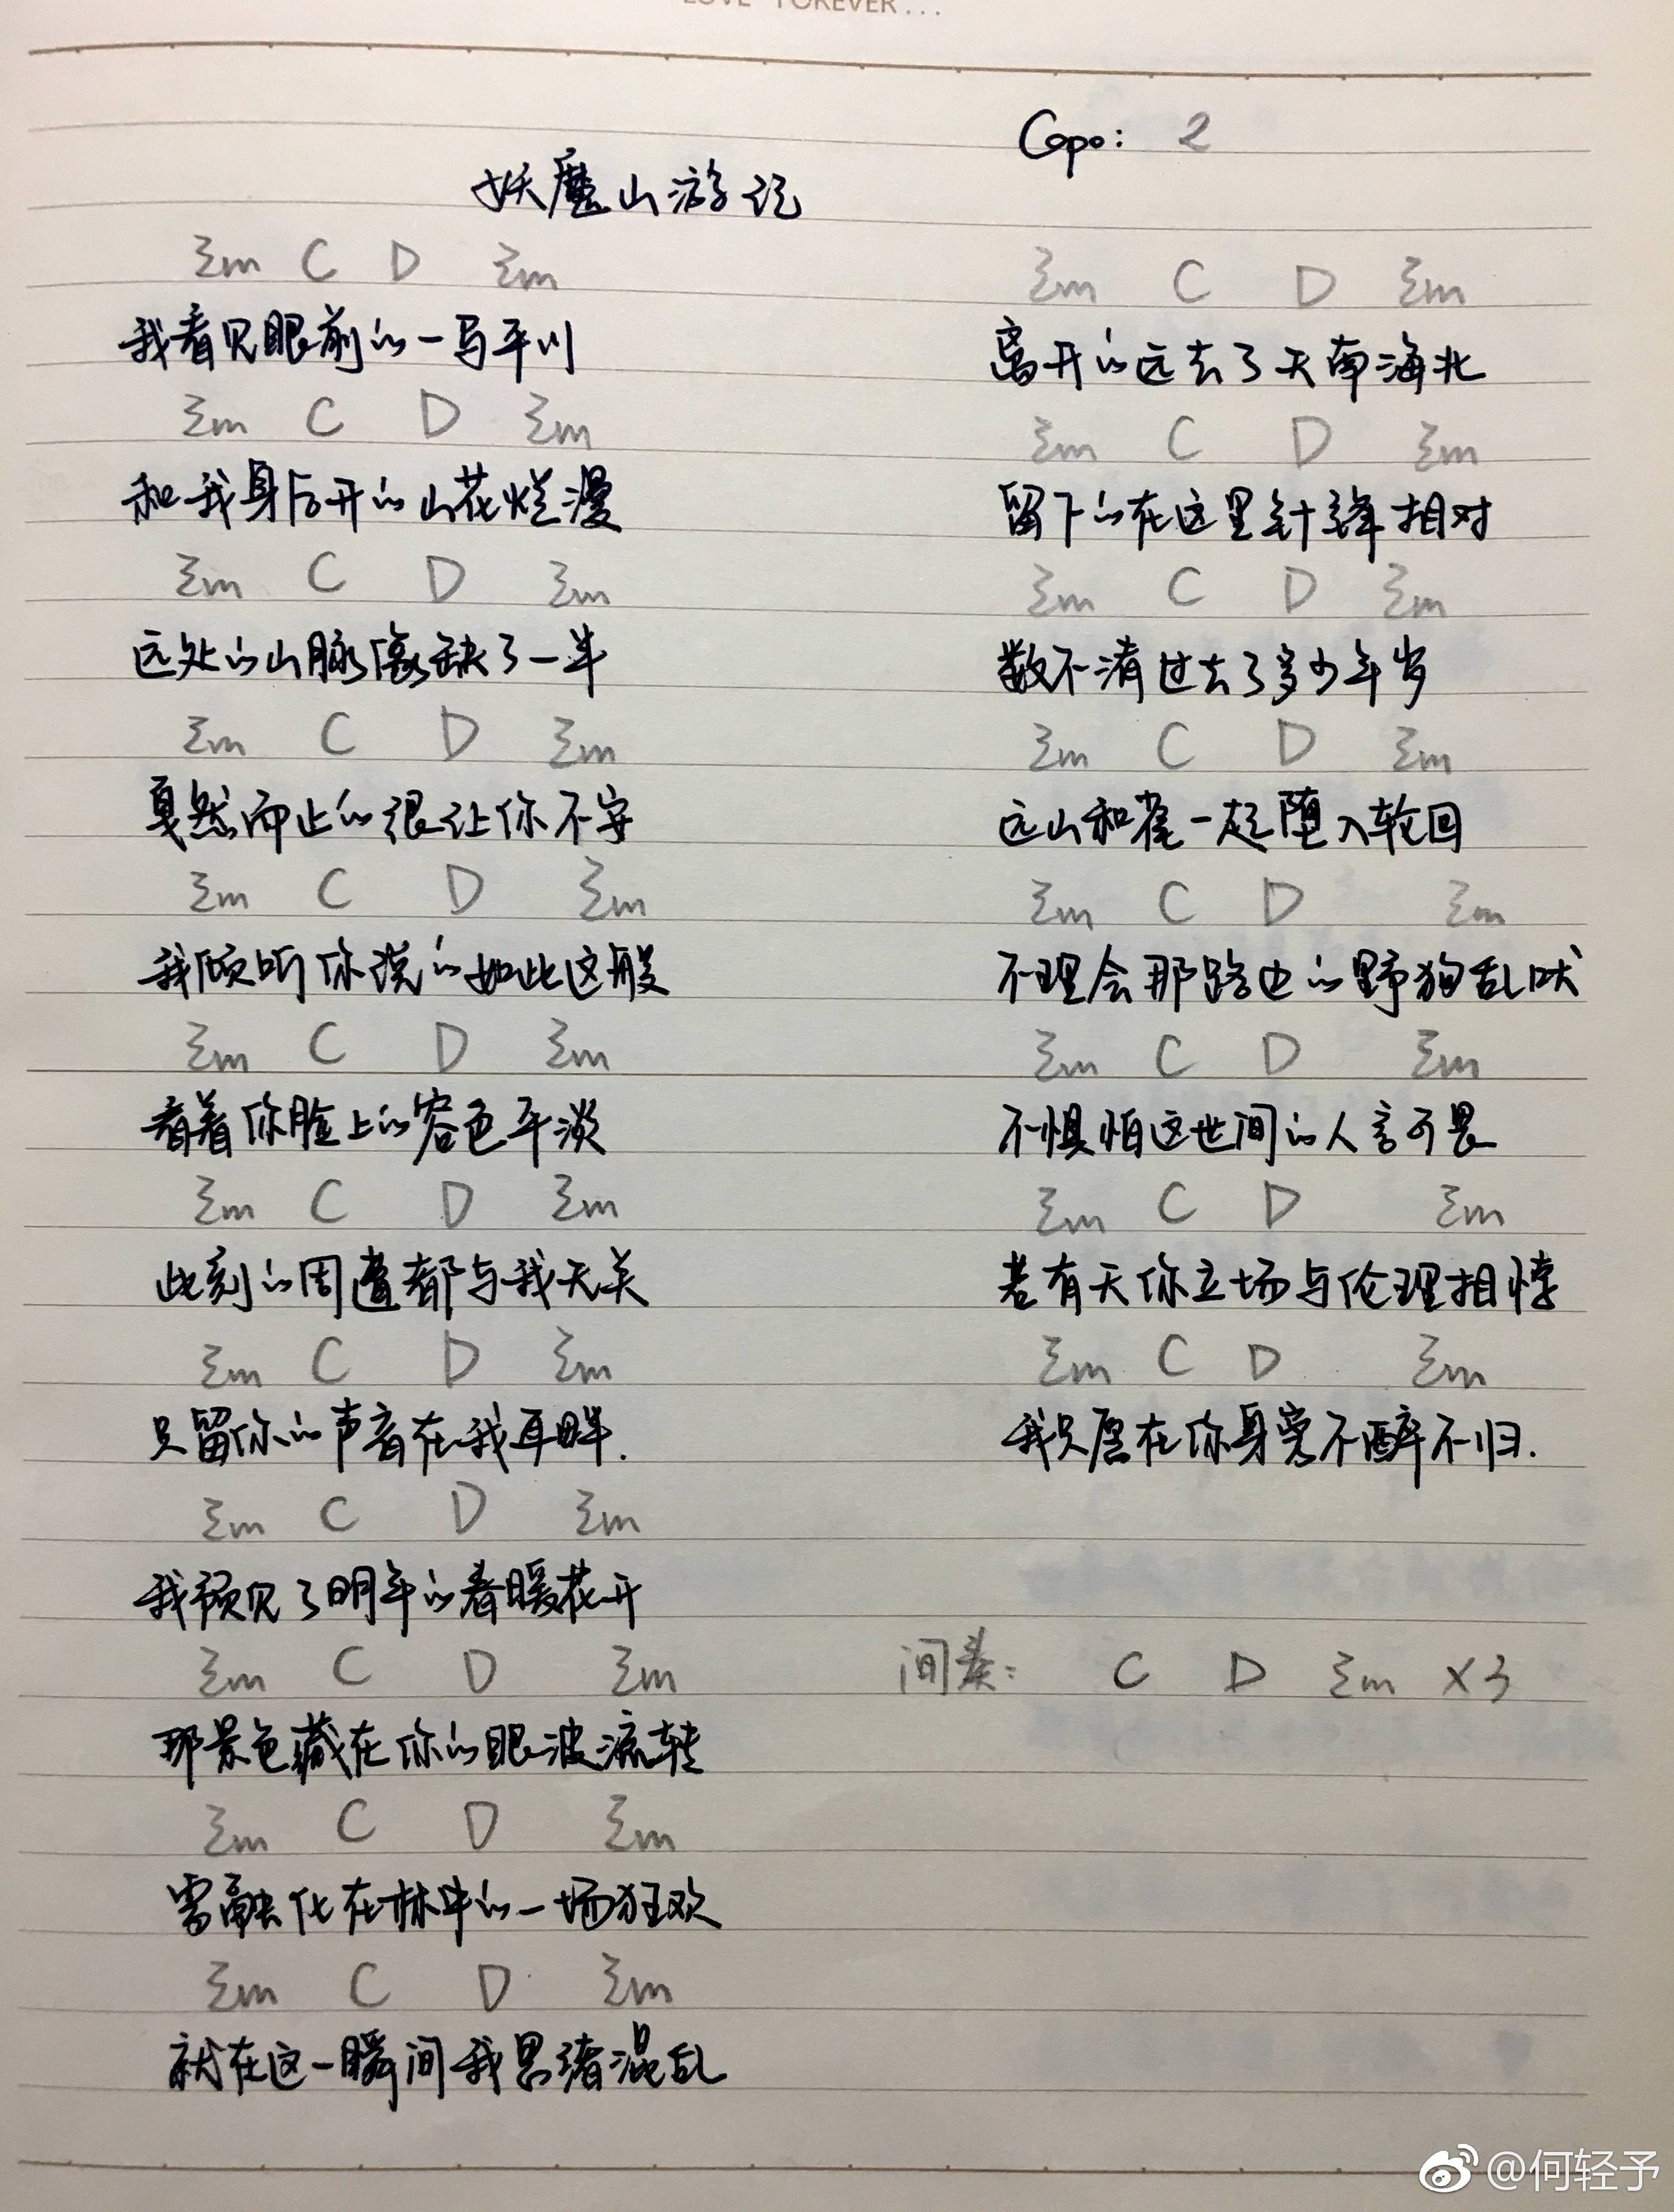 LOVE FOREVER...
Capo: 2
妖魔山游记
Em C D Em
我看见眼前的一马平川
Em C D Em
和我身后开的山花烂漫
Em C D Em
远处的山脉像缺了一半
Em C D Em
戛然而止的很让你不安
Em C D Em
我倾听你说的如此这般
Em C D Em
看着你脸上的容色平淡
Em C D Em
此刻的周遭都与我无关
Em C D Em
只留你的声音在我耳畔.
Em C D Em
我预见了明年的春暖花开
Em C D Em
那景色藏在你的眼波流转
Em C D Em
雪融化在林中的一场狂欢
Em C D Em
就在这一瞬间我思绪混乱
Em C D Em
离开的远去了天南海北
Em C D Em
留下的在这里针锋相对
Em C D Em
数不清过去了多少年岁
Em C D Em
远山和花一起堕入轮回
Em C D Em
不理会那路边的野狗乱吠
Em C D Em
不惧怕这世间的人言可畏
Em C D Em
若有天你立场与伦理相悖
Em C D Em
我只愿在你身旁不醉不归.
间奏: C D Em ×3
@何轻予